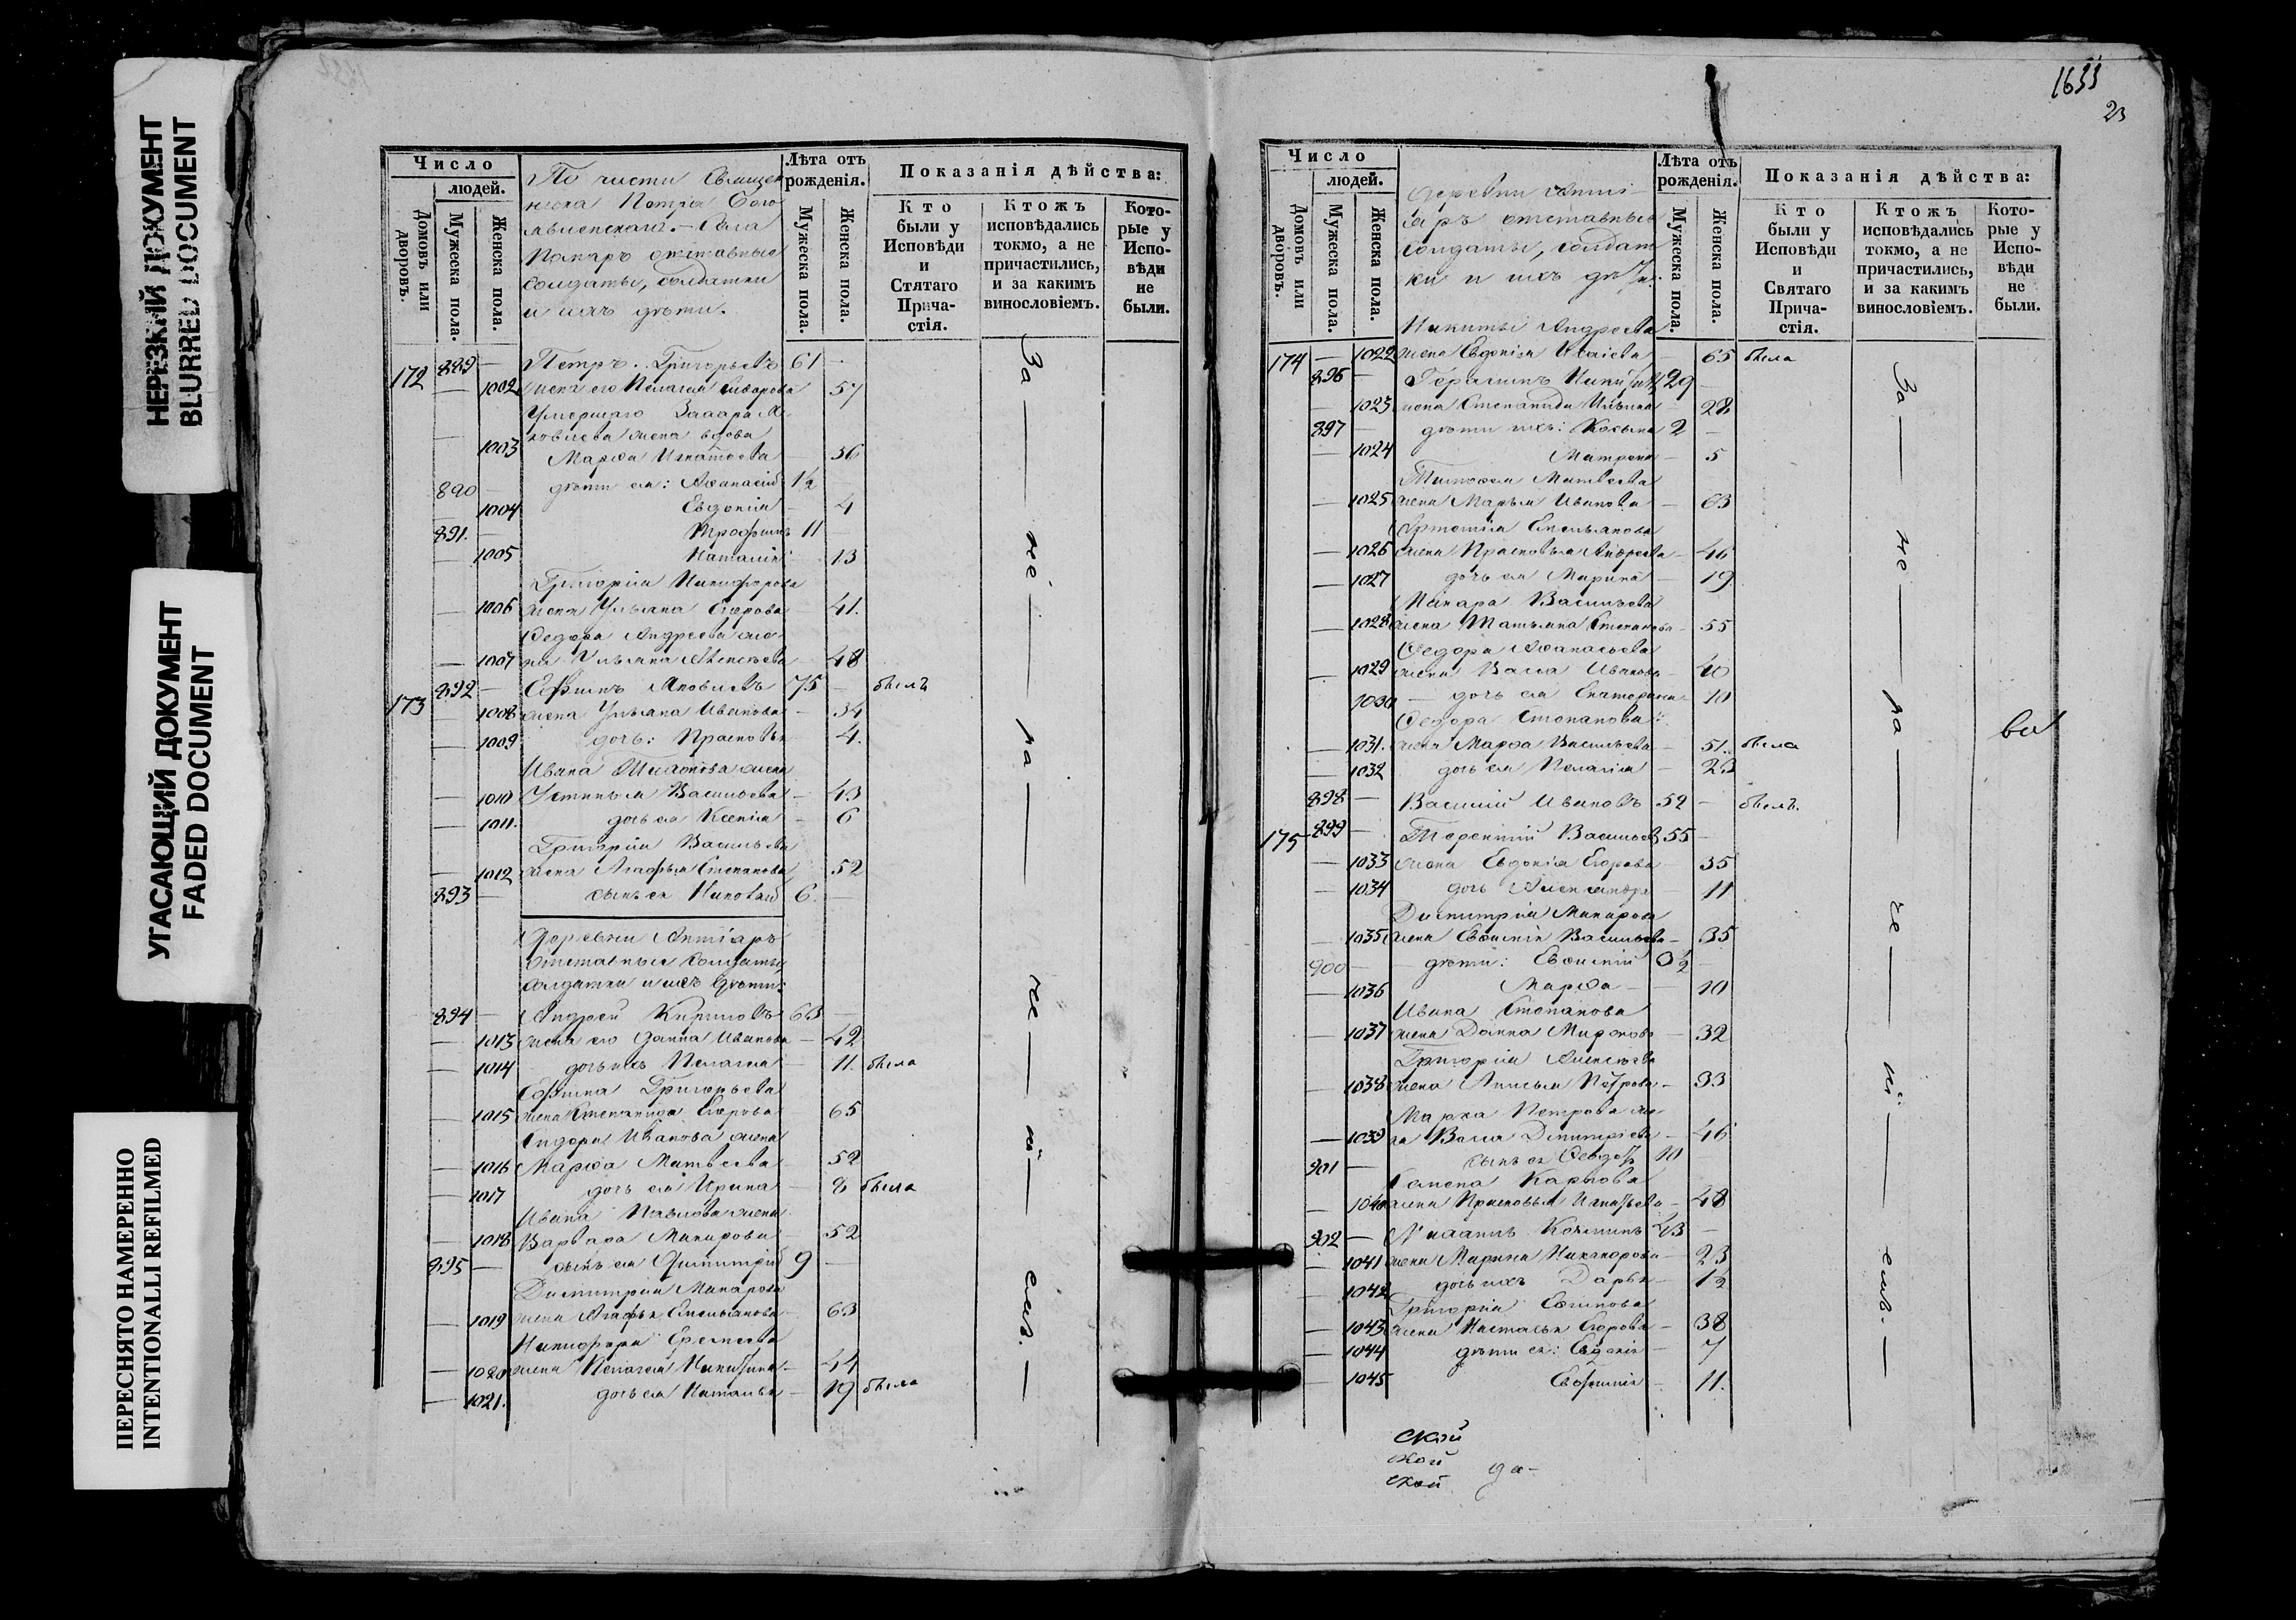 НЕРЕЗКИЙ ДОКУМЕНТ
BLURRED DOCUMENT
УГАСАЮЩИЙ ДОКУМЕНТ
FADED DOCUMENT
ПЕРЕСНЯТО НАМЕРЕННО
INTENTIONALLI REFILMED
Число
людей.
Домовъ или дворовъ.
Мужеска пола.
Женска пола.
По части Священ
ника Петра Бого
явленскаго. – Села
Макаръ отставные
солдаты, солдатки
и ихъ дѣти.
Лѣта отъ рожденія.
Мужеска пола.
Женска пола.
Показанія дѣйства:
Кто были у Исповѣди и Стятаго Прича-стія.
Ктожъ исповѣдались токмо, а не причастились, и за какимъ винословіемъ.
Кото-рые у Испо-вѣди не были.
172 889 – Петръ Григорьевъ 61 –
– 1002 жена его Пелагея 57
Умершаго
жена вдова
1003 Марѳа Игнатьева – 36
890 – дѣти ея: Аѳанасій 1½
1004 Евдокія – 4
891. – Трофимъ 11
– 1005 Наталія 13
Григорія Никифорова
– 1006 жена Ульяна Егорова – 41.
Ѳедора Андреева же
– 1007 на Ульяна Алексѣева – 48
173 892 – Ефимъ Яковлевъ 75 – былъ
– 1008 жена Ульяна Иванова – 34
– 1009 дочь: Прасковья – 4.
Ивана жена
– 1010 Устинья Васильева – 43
– 1011. дочь ея Ксенія – 6
Григорія Васильева
– 1012 жена Агафья Степанова 52
893 – сынъ ея Николай 6. –
Деревни
отставные солдаты,
солдатки и ихъ дѣти:
894 – Андрей Кириловъ 63 –
– 1013 жена его Іоанна Иванова – 42
– 1014 дочь ихъ Пелагея – 11. была
Ефима Григорьева
– 1015 жена Степанида Егорова 65
Сидора Иванова жена
– 1016 Марѳа Матвѣева 52
– 1017 дочь ея Ирина – 8 была
Ивана Павлова жена
– 1018 Варвара Макарова – 52
895 – сынъ ея Димитрій 9 –
Димитрія Макарова
– 1019 жена Агафья Емельянова – 63
Никифора Еремеева
– 1020 жена Пелагея Никитина – 44
– 1021. дочь ея Наталья – 19 была
За – не – ра – че – ні – емъ. –
1633
23
Число
людей.
Домовъ или дворовъ.
Мужеска пола.
Женска пола.
Деревни
отставные
солдаты, солдат
ки и ихъ дѣти.
Лѣта отъ рожденія.
Мужеска пола.
Женска пола.
Показанія дѣйства:
Кто были у Исповѣди и Святаго Прича-стія.
Ктожъ исповѣдались токмо, а не причастились, и за какимъ винословіемъ.
Кото-рые у Испо-вѣди не были.
Никиты Андреева
174 – 1022 жена Евдокія – 65 была
896 – Герасимъ Никитинъ 29 –
– 1023 жена Степанида Ильина – 28
897 – дѣти ихъ: Козьма 2 –
– 1024 Матрена – 5
Тимоѳея Матвѣева
– 1025 жена Марья Иванова – 63
Артемія Емельянова
– 1026 жена Прасковья Андреева – 46
– 1027 дочь ея Марина – 19
Макара Васильева
– 1028 жена Татьяна Степанова – 55
Ѳедора Аѳанасьева
– 1029 жена Васса Иванова 40
1030 – дочь ея Екатерина – 10
Ѳедора Степанова
– 1031. жена Марѳа Васильева – 51. была
– 1032 дочь ея Пелагія – 23
898 – Василій Ивановъ 52 – былъ.
175 899 – Терентій Васильевъ 55 –
– 1033 жена Евдокія Егорова – 35
– 1034 дочь Александра 11
Димитрія Макарова
– 1035 жена Евѳимія Васильева – 35
900 – дѣти: Евѳимій 0½ –
– 1036 Марѳа – 10
Ивана Степанова
– 1037 жена Іоанна Миронова – 32
Григорія Алексѣева
– 1038 жена Анисья Петрова – 33
Марка Петрова же
– 1039 на Васса Димитріева – 46
901 – сынъ ея Ѳедоръ 10
Семена Карпова
– 1040 жена Прасковья Игнатьева – 48
902 – Козминъ 23 –
– 1041 жена Марина Никанорова – 23
– 1042 дочь ихъ Дарья – ½
Григорія Евѳимова
– 1043 жена Настасья Егорова – 38
– 1044 дѣти ея: Евдокія – 7
– 1045 Евфимія – 11.
За – не – ра – че – ні – емъ. –
ской
ской
ской да-